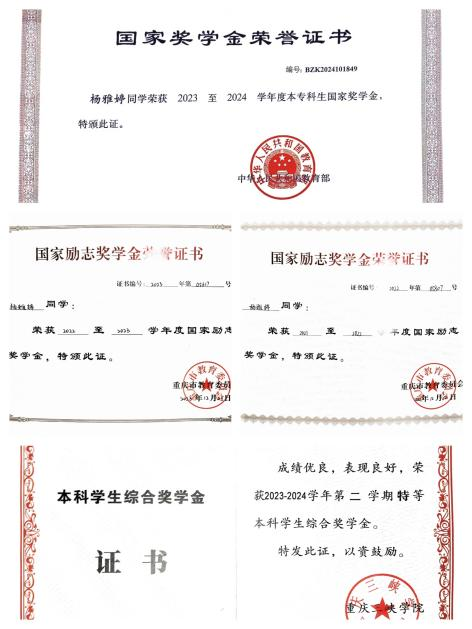 国家奖学金荣誉证书
编号: BZK2024101849
杨雅婷同学荣获 2023 至 2024 学年度本专科生国家奖学金,
特颁此证。
中华人民共和国教育部
国家励志奖学金荣誉证书
证书编号: 2023 年第 号
杨雅婷 同学:
荣获 2022 至 2023 学年度国家励志
奖学金, 特颁此证。
重庆市教育委员会
2023年12月
国家励志奖学金荣誉证书
证书编号: 2022 年第 号
杨雅婷 同学:
荣获 2021 至 2022 学年度国家励志
奖学金, 特颁此证。
重庆市教育委员会
本科学生综合奖学金
证书
成绩优良, 表现良好, 荣
获2023-2024学年第二学期特等
本科学生综合奖学金。
特发此证, 以资鼓励。
重庆三峡学院